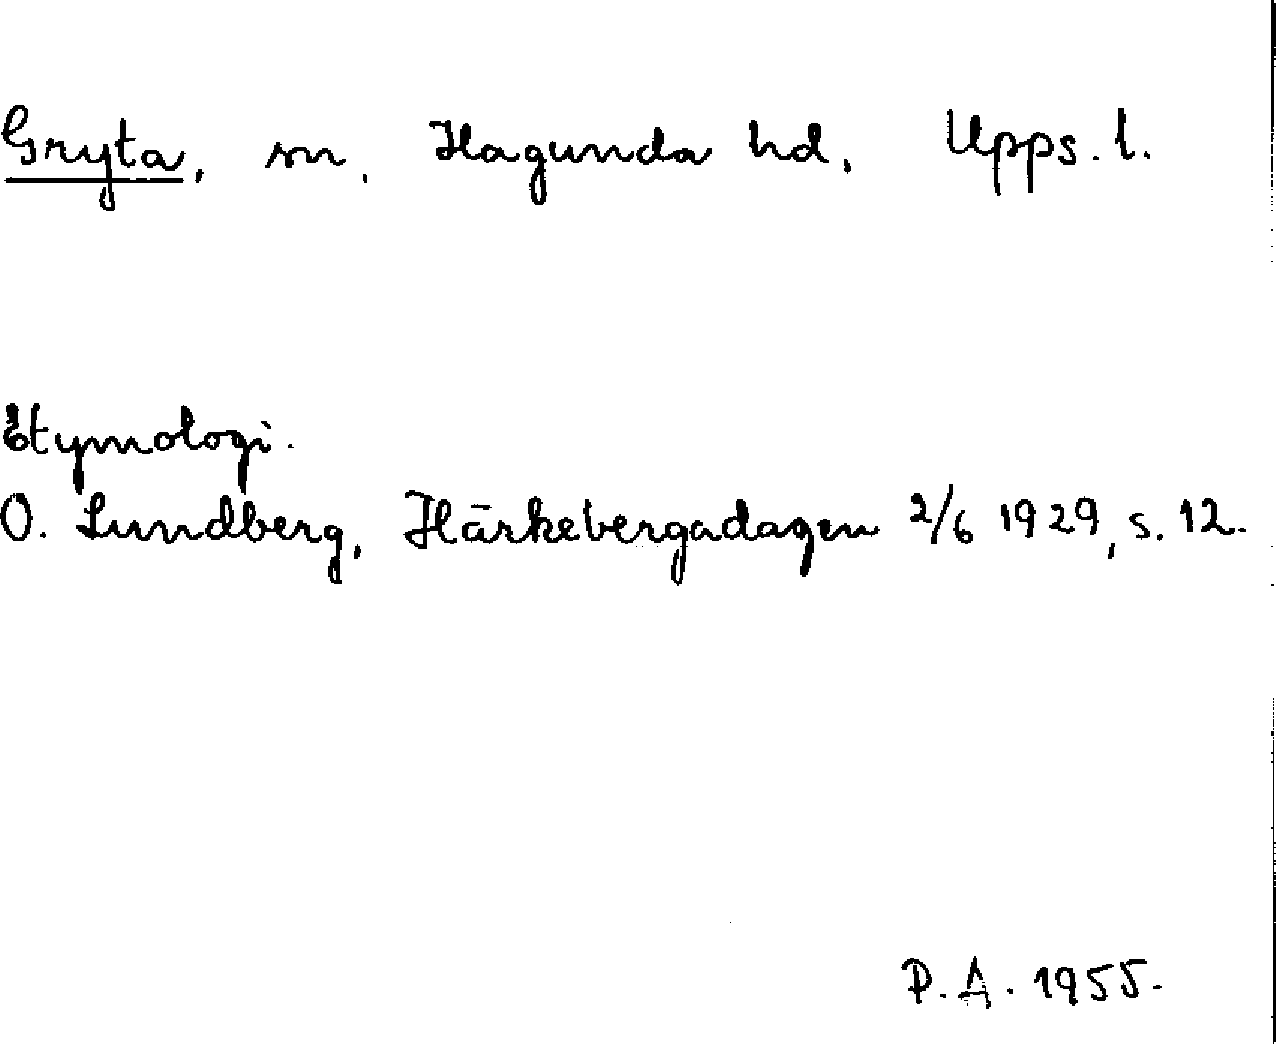 Gryta, sn, Hagunda hd, Upps. l.
Etymologi.
O. Lundberg, Härkebergadagen 2/6 1929, s. 12.
P. A. 1955.